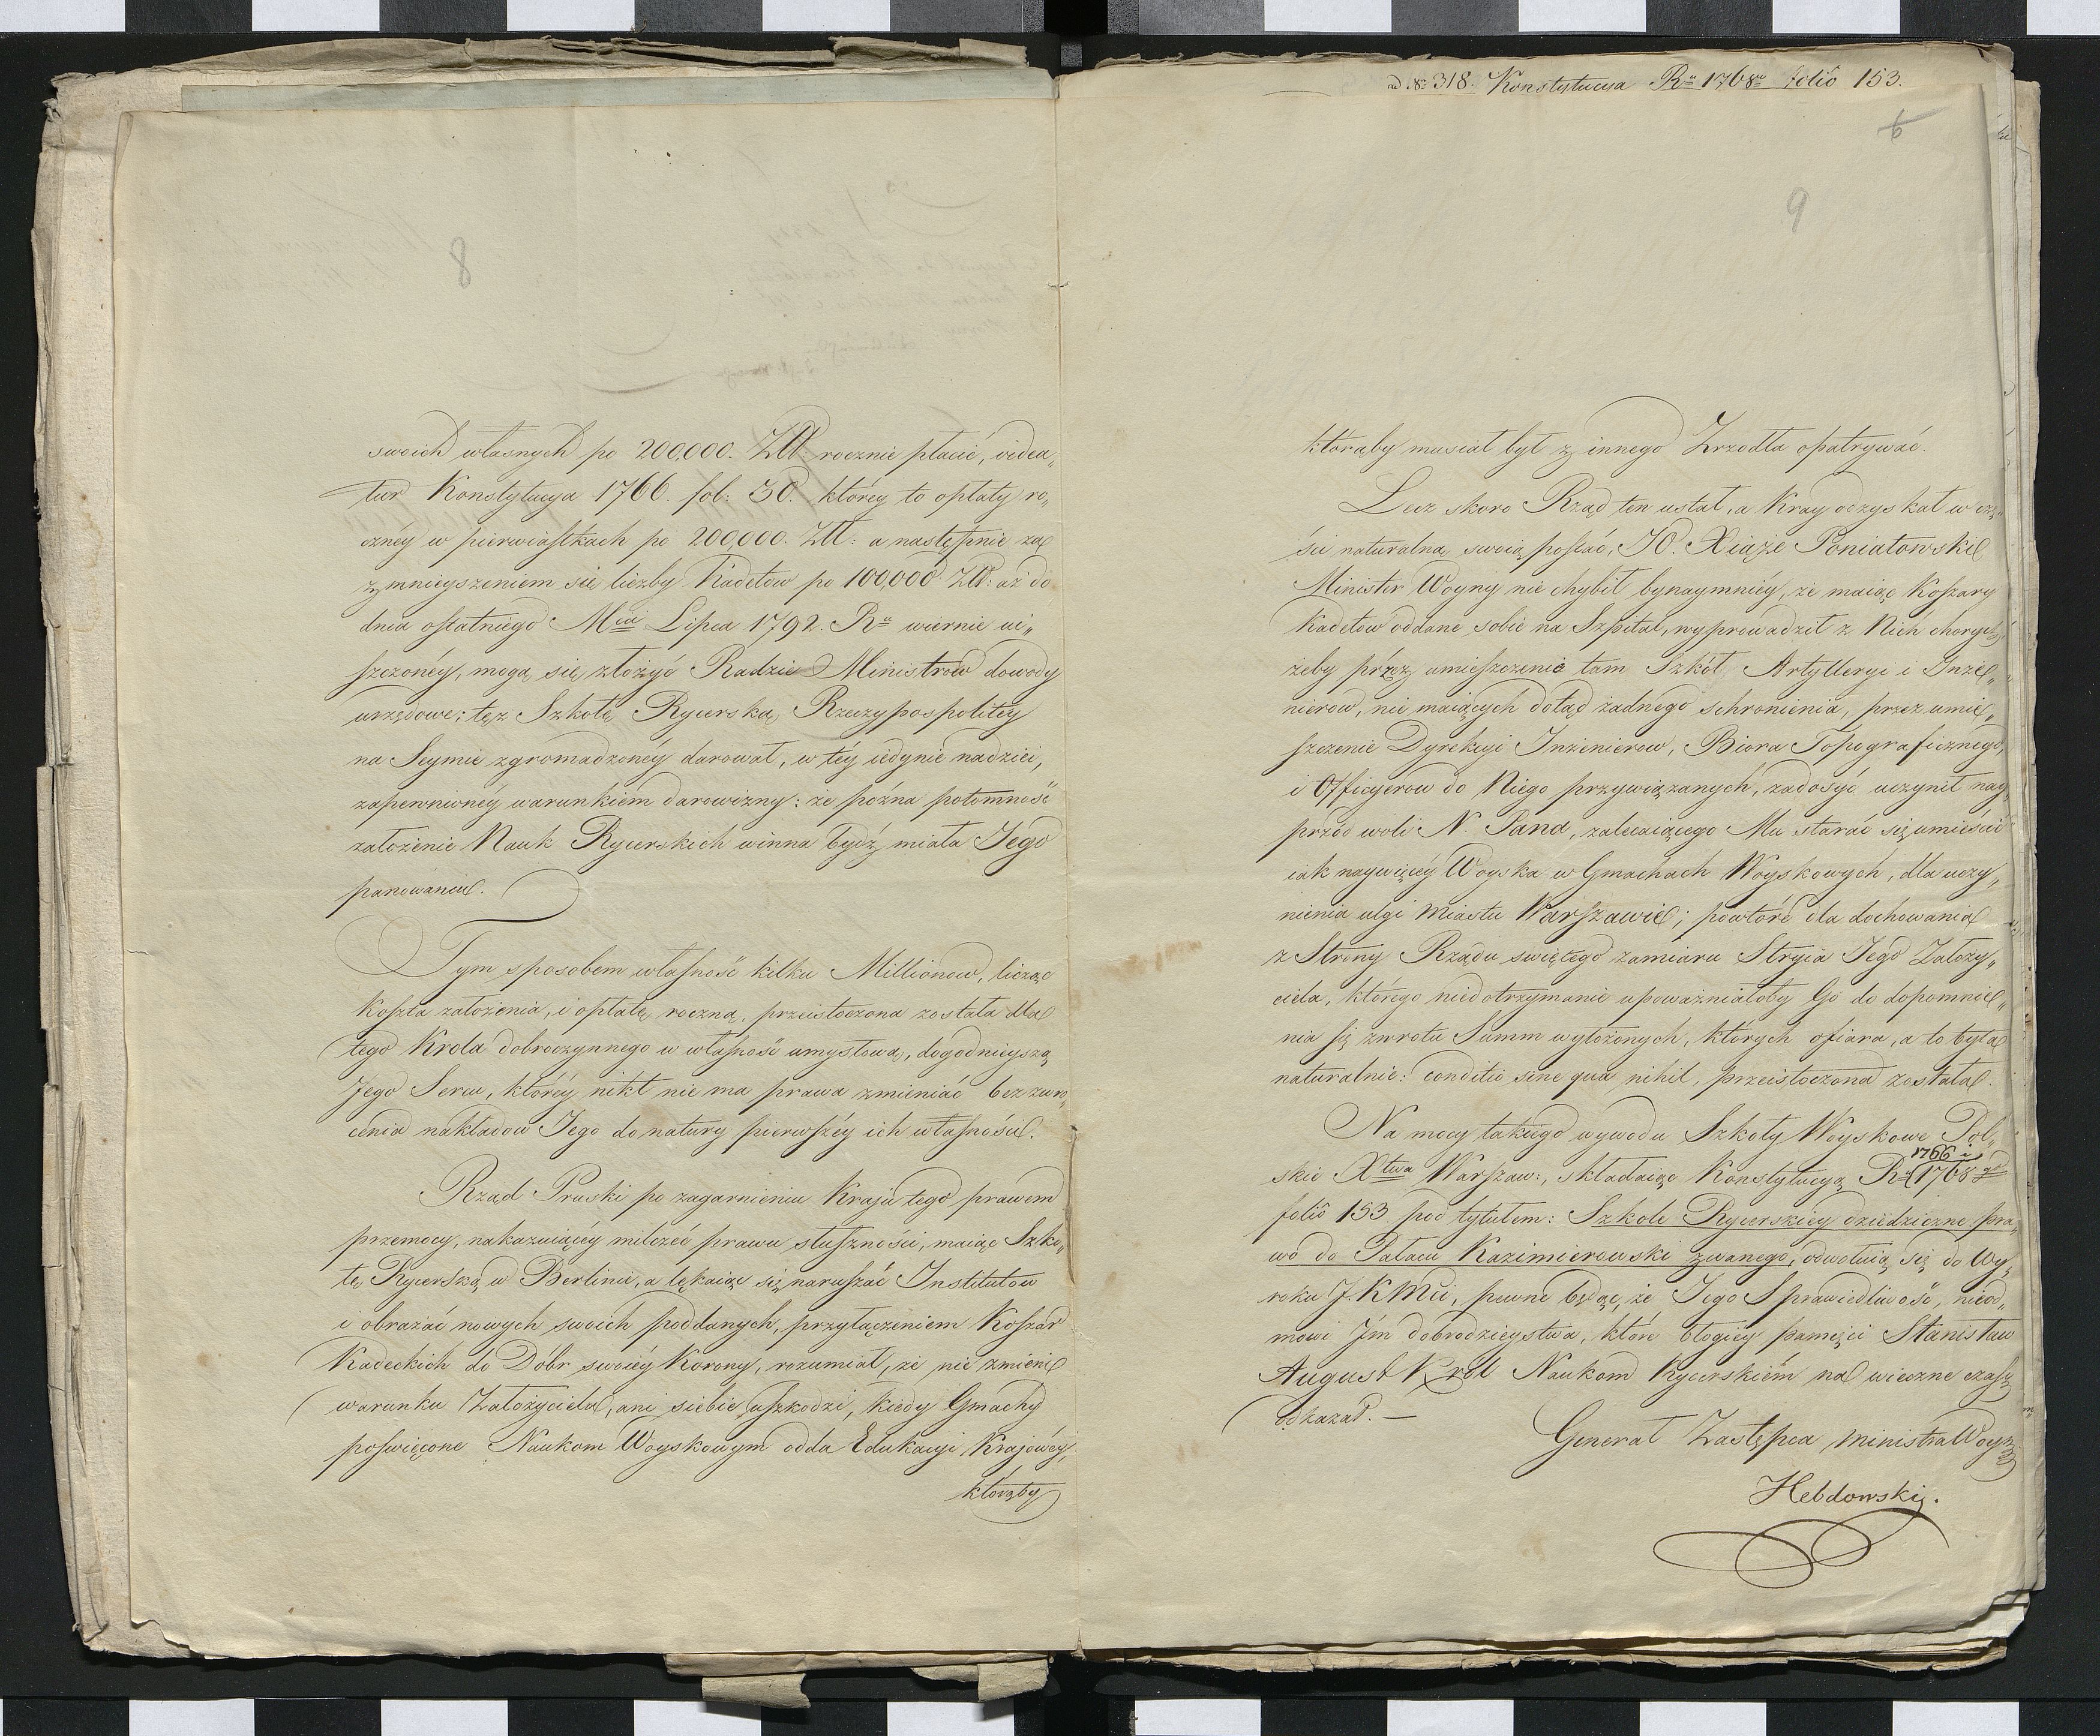 8
swoich własnych po 200,000. Złł: rocznie płacić, videa„
tur Konstytucya 1766. fol: 30. którey to opłaty ro„
czney w pierwiastkach po 200,000. Złł: a następnie za
zmnieyszeniem się liczby Kadetow po 100,000 Złł: aż do
dnia ostatniego Mca Lipca 1792. Ru wiernie ui„
szczonéy, mogą się złożyć Radzie Ministrow dowody
urzędowe; tęż Szkołę Rycerską Rzeczypospolitey
na Seymie zgromadzonéy darował, w téy iedynie nadziei,
zapewnionéy warunkiem darowizny: że poźna potomność
założenie Nauk Rycerskich winna bydź miała Jégo
panowaniu.
Tym sposobem własność kilku Millionow, licząc
koszta założenia, i opłatę roczną, przeistoczona została dla
tego Krola dobroczynnego w własność umysłową, dogodnieyszą
Jego Sercu, któréy nikt nie ma prawa zmieniać bez zwro„
cenia nakładow Jego do natury pierwszéy ich własności.
Rząd Pruski po zagarnieniu Kraju tego prawem
przemocy, nakazuiącéy milczeć prawu słuszności, maiąc Szko„
łę Rycerską w Berlinie, a lękaiąc się naruszać Institutow
i obrażać nowych swoich poddanych, przyłączeniem Koszar
Kadeckich do Dóbr swoiéy Korony, rozumiał, że nie zmieni
warunku Założyciela, ani siebie uszkodzi, kiedy Gmachy
poświęcone Naukom Woyskowym odda Edukacyi Krajowéy,
którąby
ad No 318. Konstytucya Ru 1768go folio 153.
6
9
którąby musiał był z innego Zrzodła opatrywać.
Lecz skoro Rząd ten ustał, a Kray odzyskał w czę„
ści naturalną swoią postać, JO. Xiąże Poniatowski
Minister Woyny nie chybił bynaymniéy, że maiąc Koszary
Kadetow oddane sobie na Szpital, wyprowadził z Nich chorych
żeby przez umieszczenie tam Szkół Artylleryi i Inże„
nierow, nie maiących dotąd żadnego schronienia, przez umie„
szczenie Dyrekcyi Inżinierow, Biora Topograficznégo,
i Officyerow do Niego przywiązanych, zadosyć uczynił nay„
przód woli N. Pana, zalecaiącego Mu starać się umieścić
iak naywięcéy Woyska w Gmachach Woyskowych, dla uczy„
nienia ulgi Miastu Warszawie; powtóre dla dochowania
z Strony Rządu swiętego zamiaru Stryia Jégo Założy„
ciela, którego niedotrzymanie upoważniałoby Go do dopomnie„
nia się zwrotu Summ wyłożonych, których ofiara, a to była
naturalnie: conditio sine qua nihil, przeistoczona została.
Na mocy takiégo wywodu Szkoły Woyskowe Pol„
skie Xtwa Warszaw:, składaiąc Konstytucyą Ru 1766 i 1768go
folio 153 pod tytułem: Szkole Rycerskiey dziedziczne pra„
wo do Pałacu Kazimierowski zwanego, odwołuią się do Wy„
roku J.K.Mci, pewne będąc, że Jego Sprawiedliwość, nieod„
mowi Im dobrodzieystwa, które błogiéy pamięci Stanisław
August Krol Naukom Rycerskiém na wieczne czasy
odkazał. —
Generał Zastępca Ministra Woyny
Hebdowski.